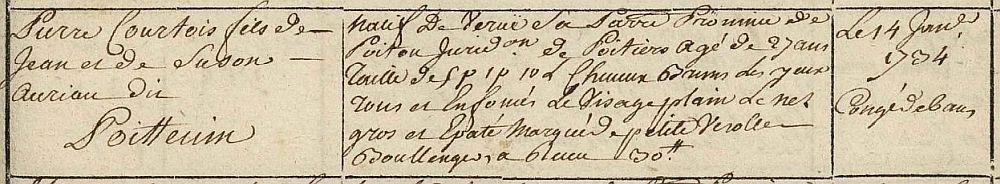 Pierre Courtois fils de
Jean et de Suson
Auriau dit
Poittevin
natif De Verue Sa Parre Province de
Poitou Juridon de Poitiers Agé de 27 ans
Taille de 5 p 1 p 10 L Cheveux Bruns les yeux
roux et Enfoncés Le Visage plain Le nez
gros et Epaté Marqué de petite Verolle
Boullenger, a Reçu 30tt
Le 14 Janr.
1734
Congé de 6 ans